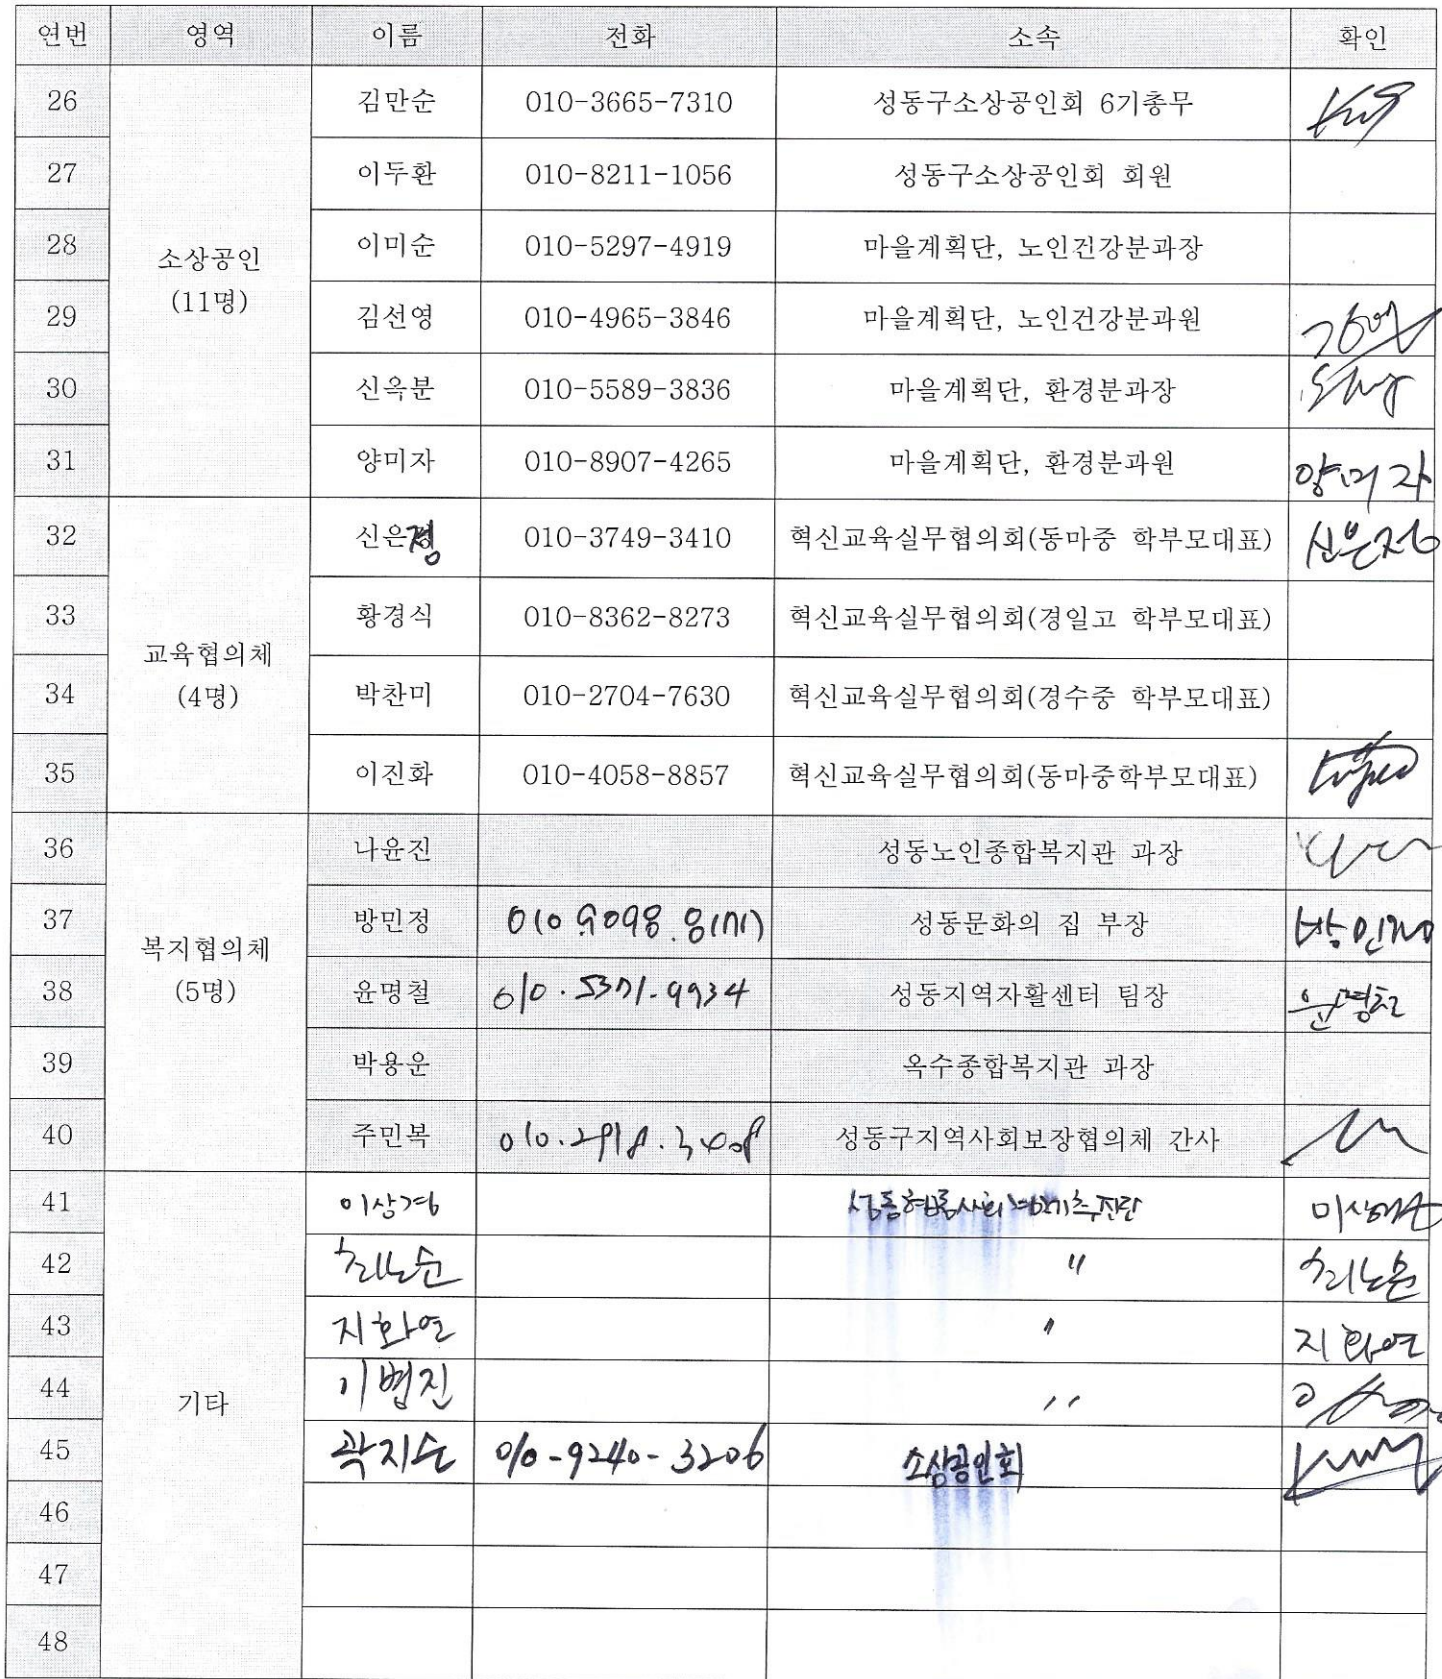 연번 영역 이름 전화 소속 확인
26 김만순 010-3665-7310 성동구소상공인회 6기총무
27 이두환 010-8211-1056 성동구소상공인회 회원
28 이미순 010-5297-4919 마을계획단, 노인건강분과장
소상공인
(11명)
29 김선영 010-4965-3846 마을계획단, 노인건강분과원
30 신옥분 010-5589-3836 마을계획단, 환경분과장
31 양미자 010-8907-4265 마을계획단, 환경분과원 양미자
32 신은정 010-3749-3410 혁신교육실무협의회(동마중 학부모대표) 신은정
33 황경식 010-8362-8273 혁신교육실무협의회(경일고 학부모대표)
교육협의체
(4명)
34 박찬미 010-2704-7630 혁신교육실무협의회(경수중 학부모대표)
35 이진화 010-4058-8857 혁신교육실무협의회(동마중학부모대표)
36 나윤진 성동노인종합복지관 과장
37 방민정 성동문화의 집 부장 방민정
복지협의체
(5명)
38 윤명철 010.5371.9934 성동지역자활센터 팀장 윤명철
39 박용운 옥수종합복지관 과장
40 주민복 성동구지역사회보장협의체 간사
41 이상경
42 〃
43 지화연 〃 지화연
44 〃
기타
45 곽지순 010-9240-3206 소상공인회
46
47
48